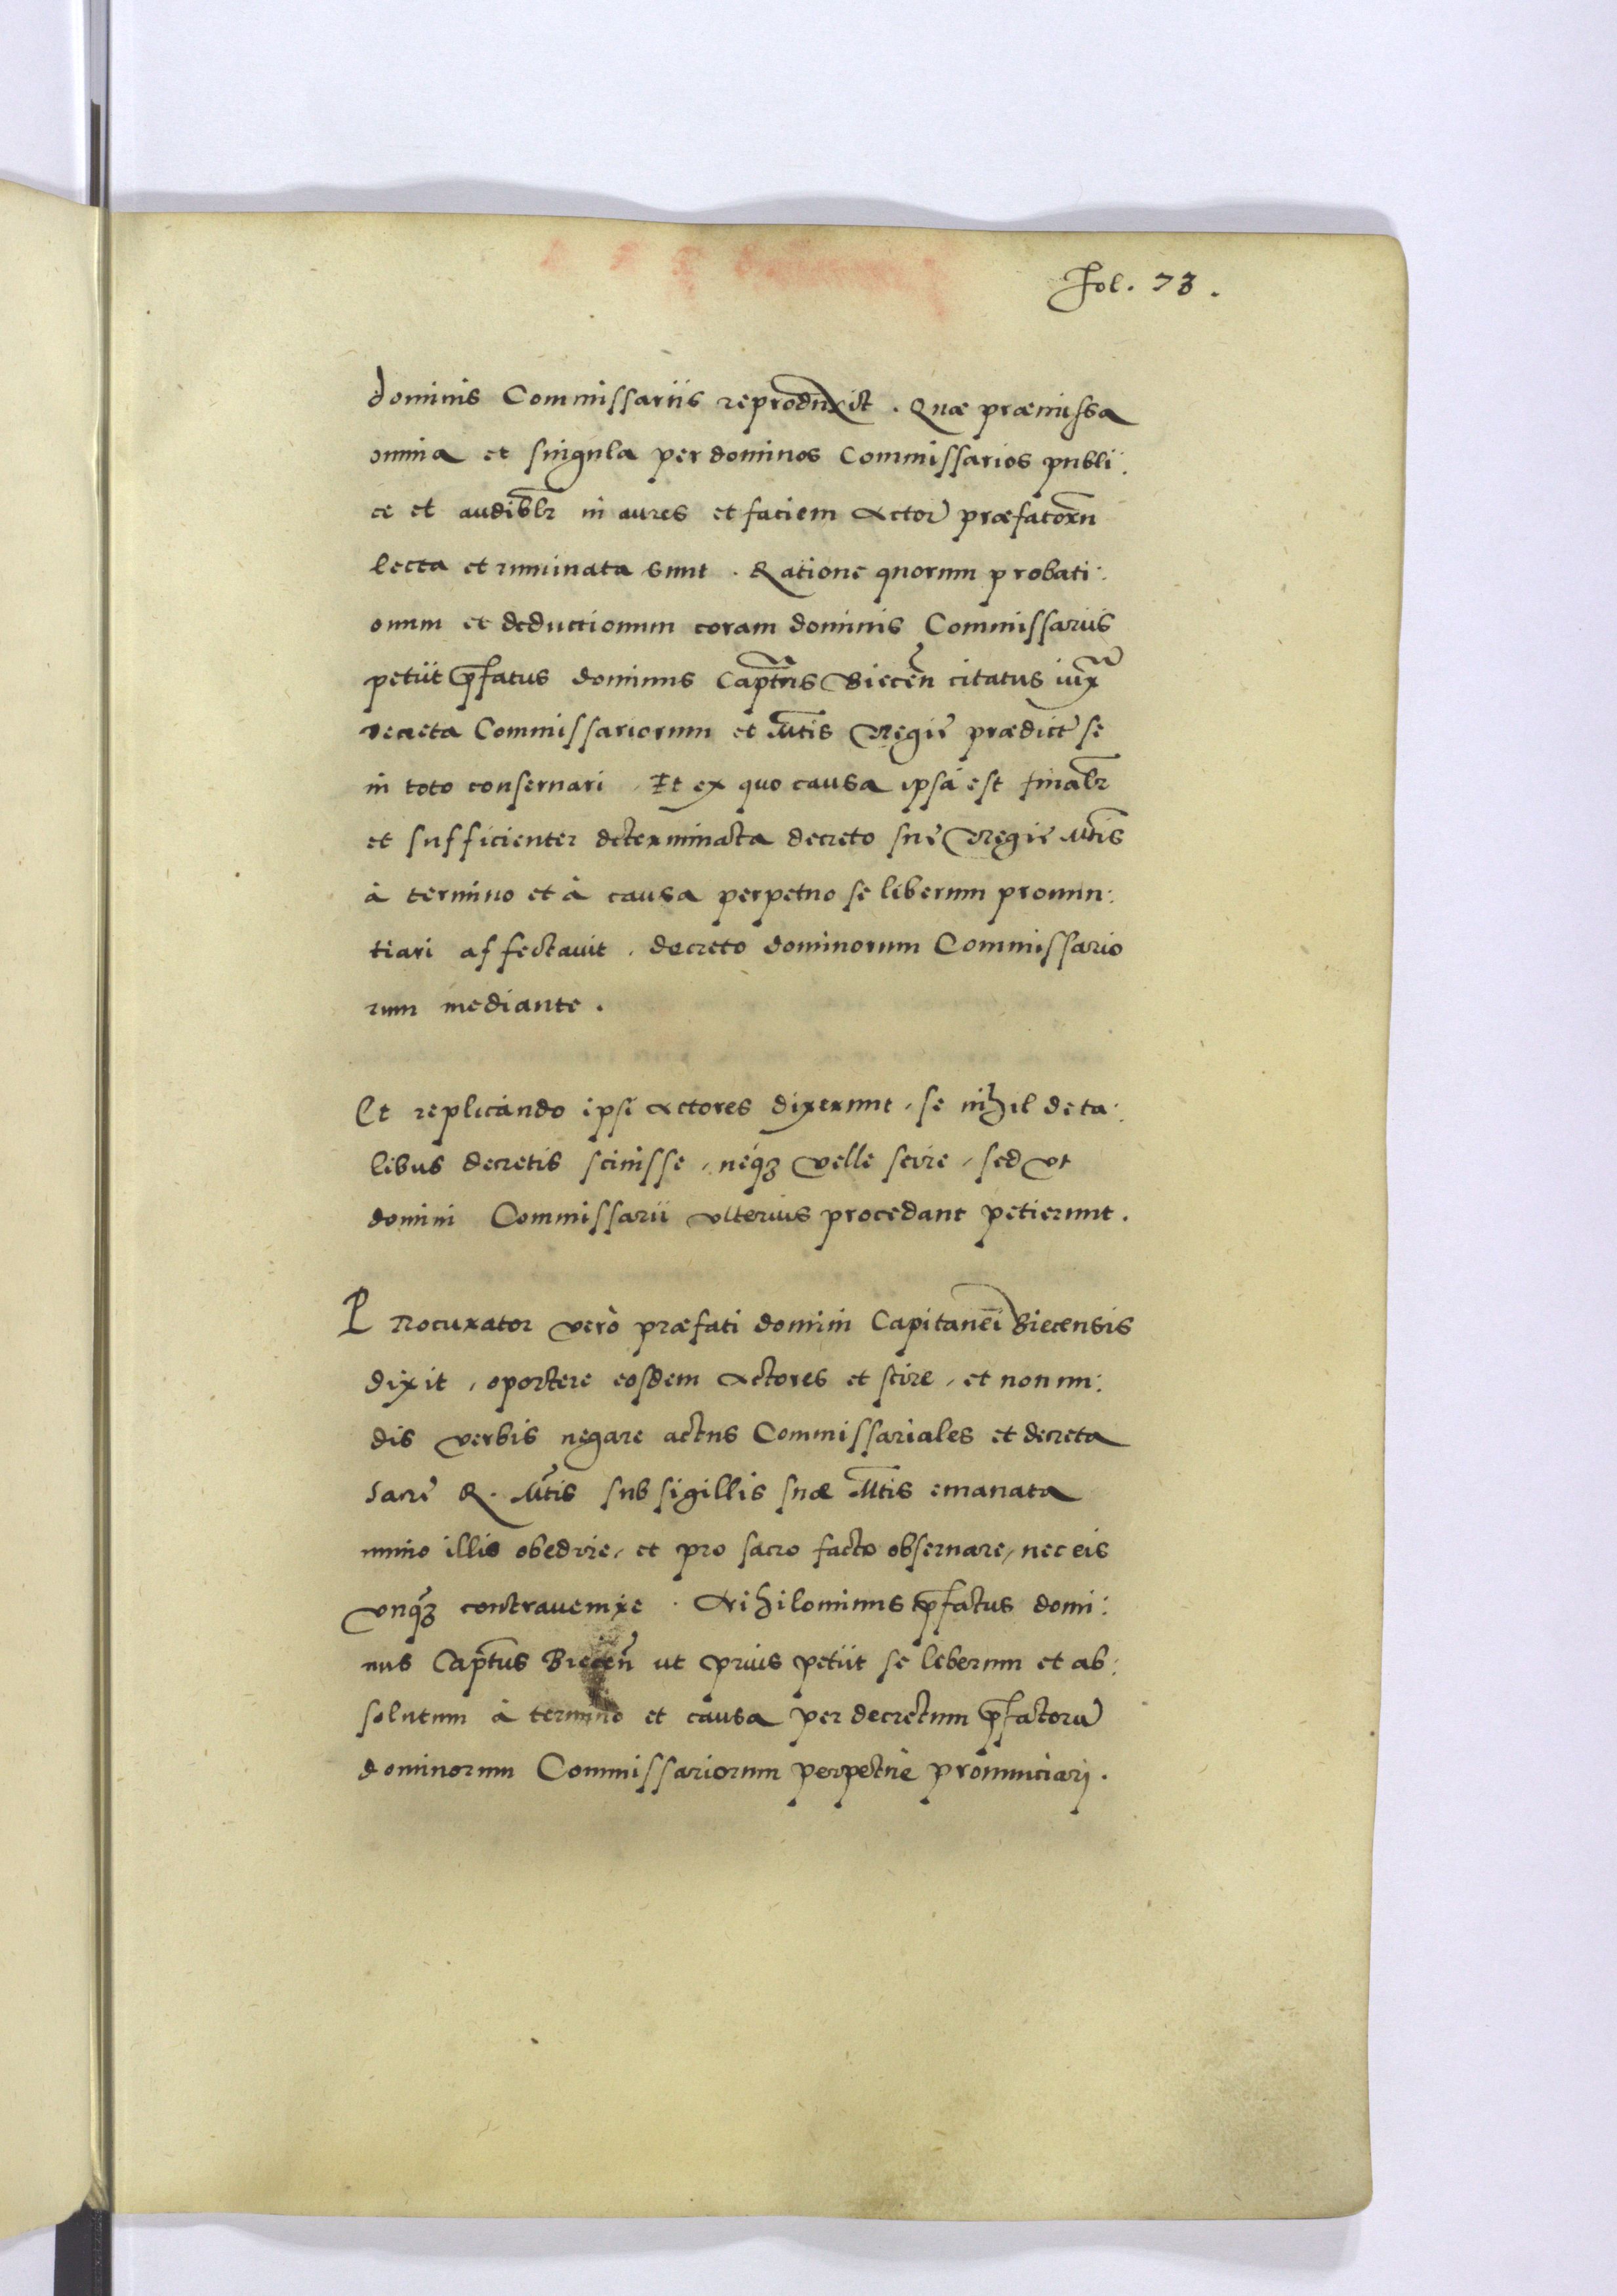 Fol. 73.
dominis Commissariis reproduxit. Quæ præmissa
omnia et singula per dominos Commissarios publi:
ce et audiblr in aures et faciem Actor præfatorum
lecta et ruminata sunt. Ratione quorum probati:
onum et deductionum coram dominis Commissariis
petiit pfatus dominus Captnus Biecen citatus iuxa
decreta Commissariorum et Mtis Regie prædict se
in toto conservari. Et ex quo causa ipsa est finalr
et sufficienter determinata decreto sue Regie Mtis
à termino et à causa perpetuo se liberum pronun:
tiari affectavit. decreto dominorum Commissario
rum mediante.
Et replicando ipsi Actores dixerunt, se nihil de ta:
libus decretis scivisse, neqz velle scire, sed vt
domini Commissarii vlterius procedant petierunt.
Procurator verò præfati domini Capitanei Biecensis
dixit, oportere eosdem Actores et scire, et non nu:
dis verbis negare actus Commissariales et decreta
Sacre R. Mtis sub sigillis suæ Mtis emanata
immo illis obedire, et pro sacro facto observare, nec eis
vnqz contravenire. Nihilominus pfatus domi:
nus Captnus Biecen ut prius petiit se liberum et ab:
solutum à termino et causa per decretum pfatoru
dominorum Commissariorum perpetue pronunciari.